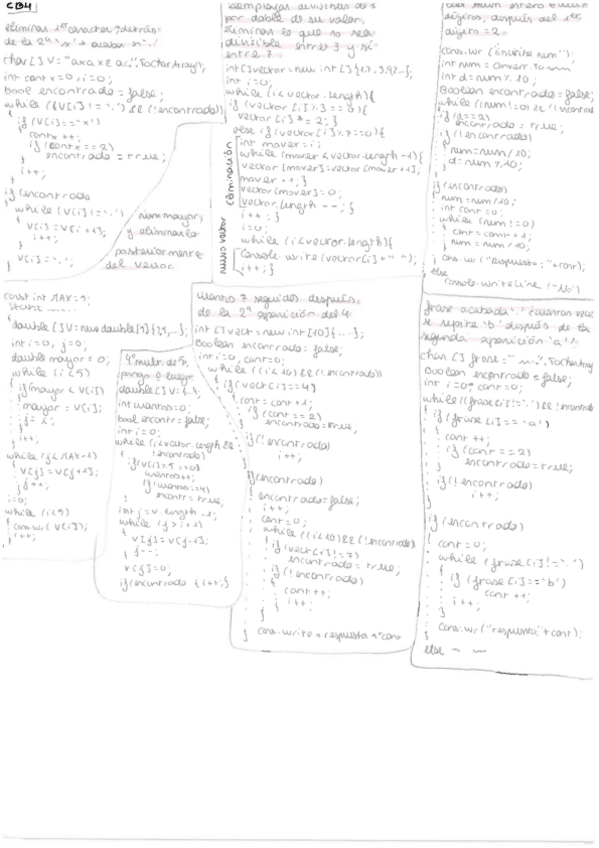 CB4
eliminar 1er caracter detrás
de la 2ª 'x' → acabar en '.'
char[] V = "axa xz ac.".ToCharArray();
int contx = 0, i=0;
bool encontrado = false;
while ((V[i] != '.') && (!encontrado))
{ if (V[i] == 'x')
contx ++;
if (contx == 2)
encontrado = true;
i++;
}
if (encontrado
while (V[i] != '.')
{ V[i] = V[i+1];
i++;
}
V[i] = '.';
num mayor,
y eliminarlo
posteriormente
del vector
const int MAX = 9;
double[] V = new double[9]
int i=0, j=0;
double mayor = 0;
while (i<9)
{ if (mayor < V[i])
{ mayor = V[i];
j = i;
}
i++;
}
while (j<MAX-1)
{ V[j] = V[j+1];
j++;
}
i=0;
while (i<9)
{ con.wr(V[i]);
i++;
4º mult. de 5,
luego
double[] V =
int cuantos=0;
bool encontr = false;
int i = 0;
while (i<vector.length &&
!encontrado)
if (V[i] % 5 == 0)
cuantos++;
if (cuantos == 4)
encontr = true;
int j = v.length - 1;
while (j > i+1)
{ V[j] = V[j-1];
j--;
}
V[j] = 0;
if (encontrado {i++;}
reemplazar divisibles
por doble de su valor,
eliminar lo que no sea
divisible entre 3 y sí
entre 7.
int[] vector = new int[]
int i=0;
while (i < vector.length){
if (vector[i] % 3 == 0){
vector[i] *= 2; }
else if (vector[i] % 7 == 0){
int mover = i;
while (mover < vector.length -1){
vector[mover] = vector[mover+1];
mover +1; }
vector[mover] = 0;
vector.length --; }
i++; }
i=0;
while (i<vector.length){
Console.write(vector[i] + " ");
i++; }
eliminación
cuantos 7 seguidos después
de la 2ª aparición del 4
int[] vect = new int[10] {...};
Boolean encontrado = false;
int i=0, cont=0;
while ((i<10) && (!encontrado))
{ if (vect[i] == 4)
{ cont = cont+1;
if (cont == 2)
encontrado = true;
}
if (!encontrado)
i++;
}
if (encontrado)
{
encontrado = false;
i++;
cont = 0;
while ((i<10) && (!encontrado)
{ if (vect[i] != 7)
encontrado = true;
if (!encontrado)
{ cont++;
i++;
}
}
cons.write → respuesta +"cont
dígitos, después del 1er
dígito = 2
cons.wr("Escribe num");
int num = convert.to
int d = num % 10;
Boolean encontrado = false;
while ((num!=0) && (!encontrado
{ if (d==2)
encontrado = true;
if (!encontrado)
{ num = num / 10;
d = num % 10;
}
if (encontrado)
num = num / 10;
int cont = 0;
while (num != 0)
{ cont = cont + 1;
num = num / 10;
}
cons.wr("Respuesta: "+cont);
else
Console.writeline("No")
frase acabada '.' cuantas vece
se repite 'b' después de la
segunda aparición 'a'!
char[] frase = " .".ToCharArray
Boolean encontrado = false;
int i=0, cont=0;
while ((frase[i] != '.') && !encontrado
{ if (frase[i] == 'a')
{ cont++;
if (cont == 2)
encontrado = true;
}
if (!encontrado)
i++;
}
if (encontrado)
{ cont = 0;
while (frase[i] != '.')
{ if (frase[i] == 'b')
cont++;
i++;
}
cons.wr("respuesta:"+cont);
else